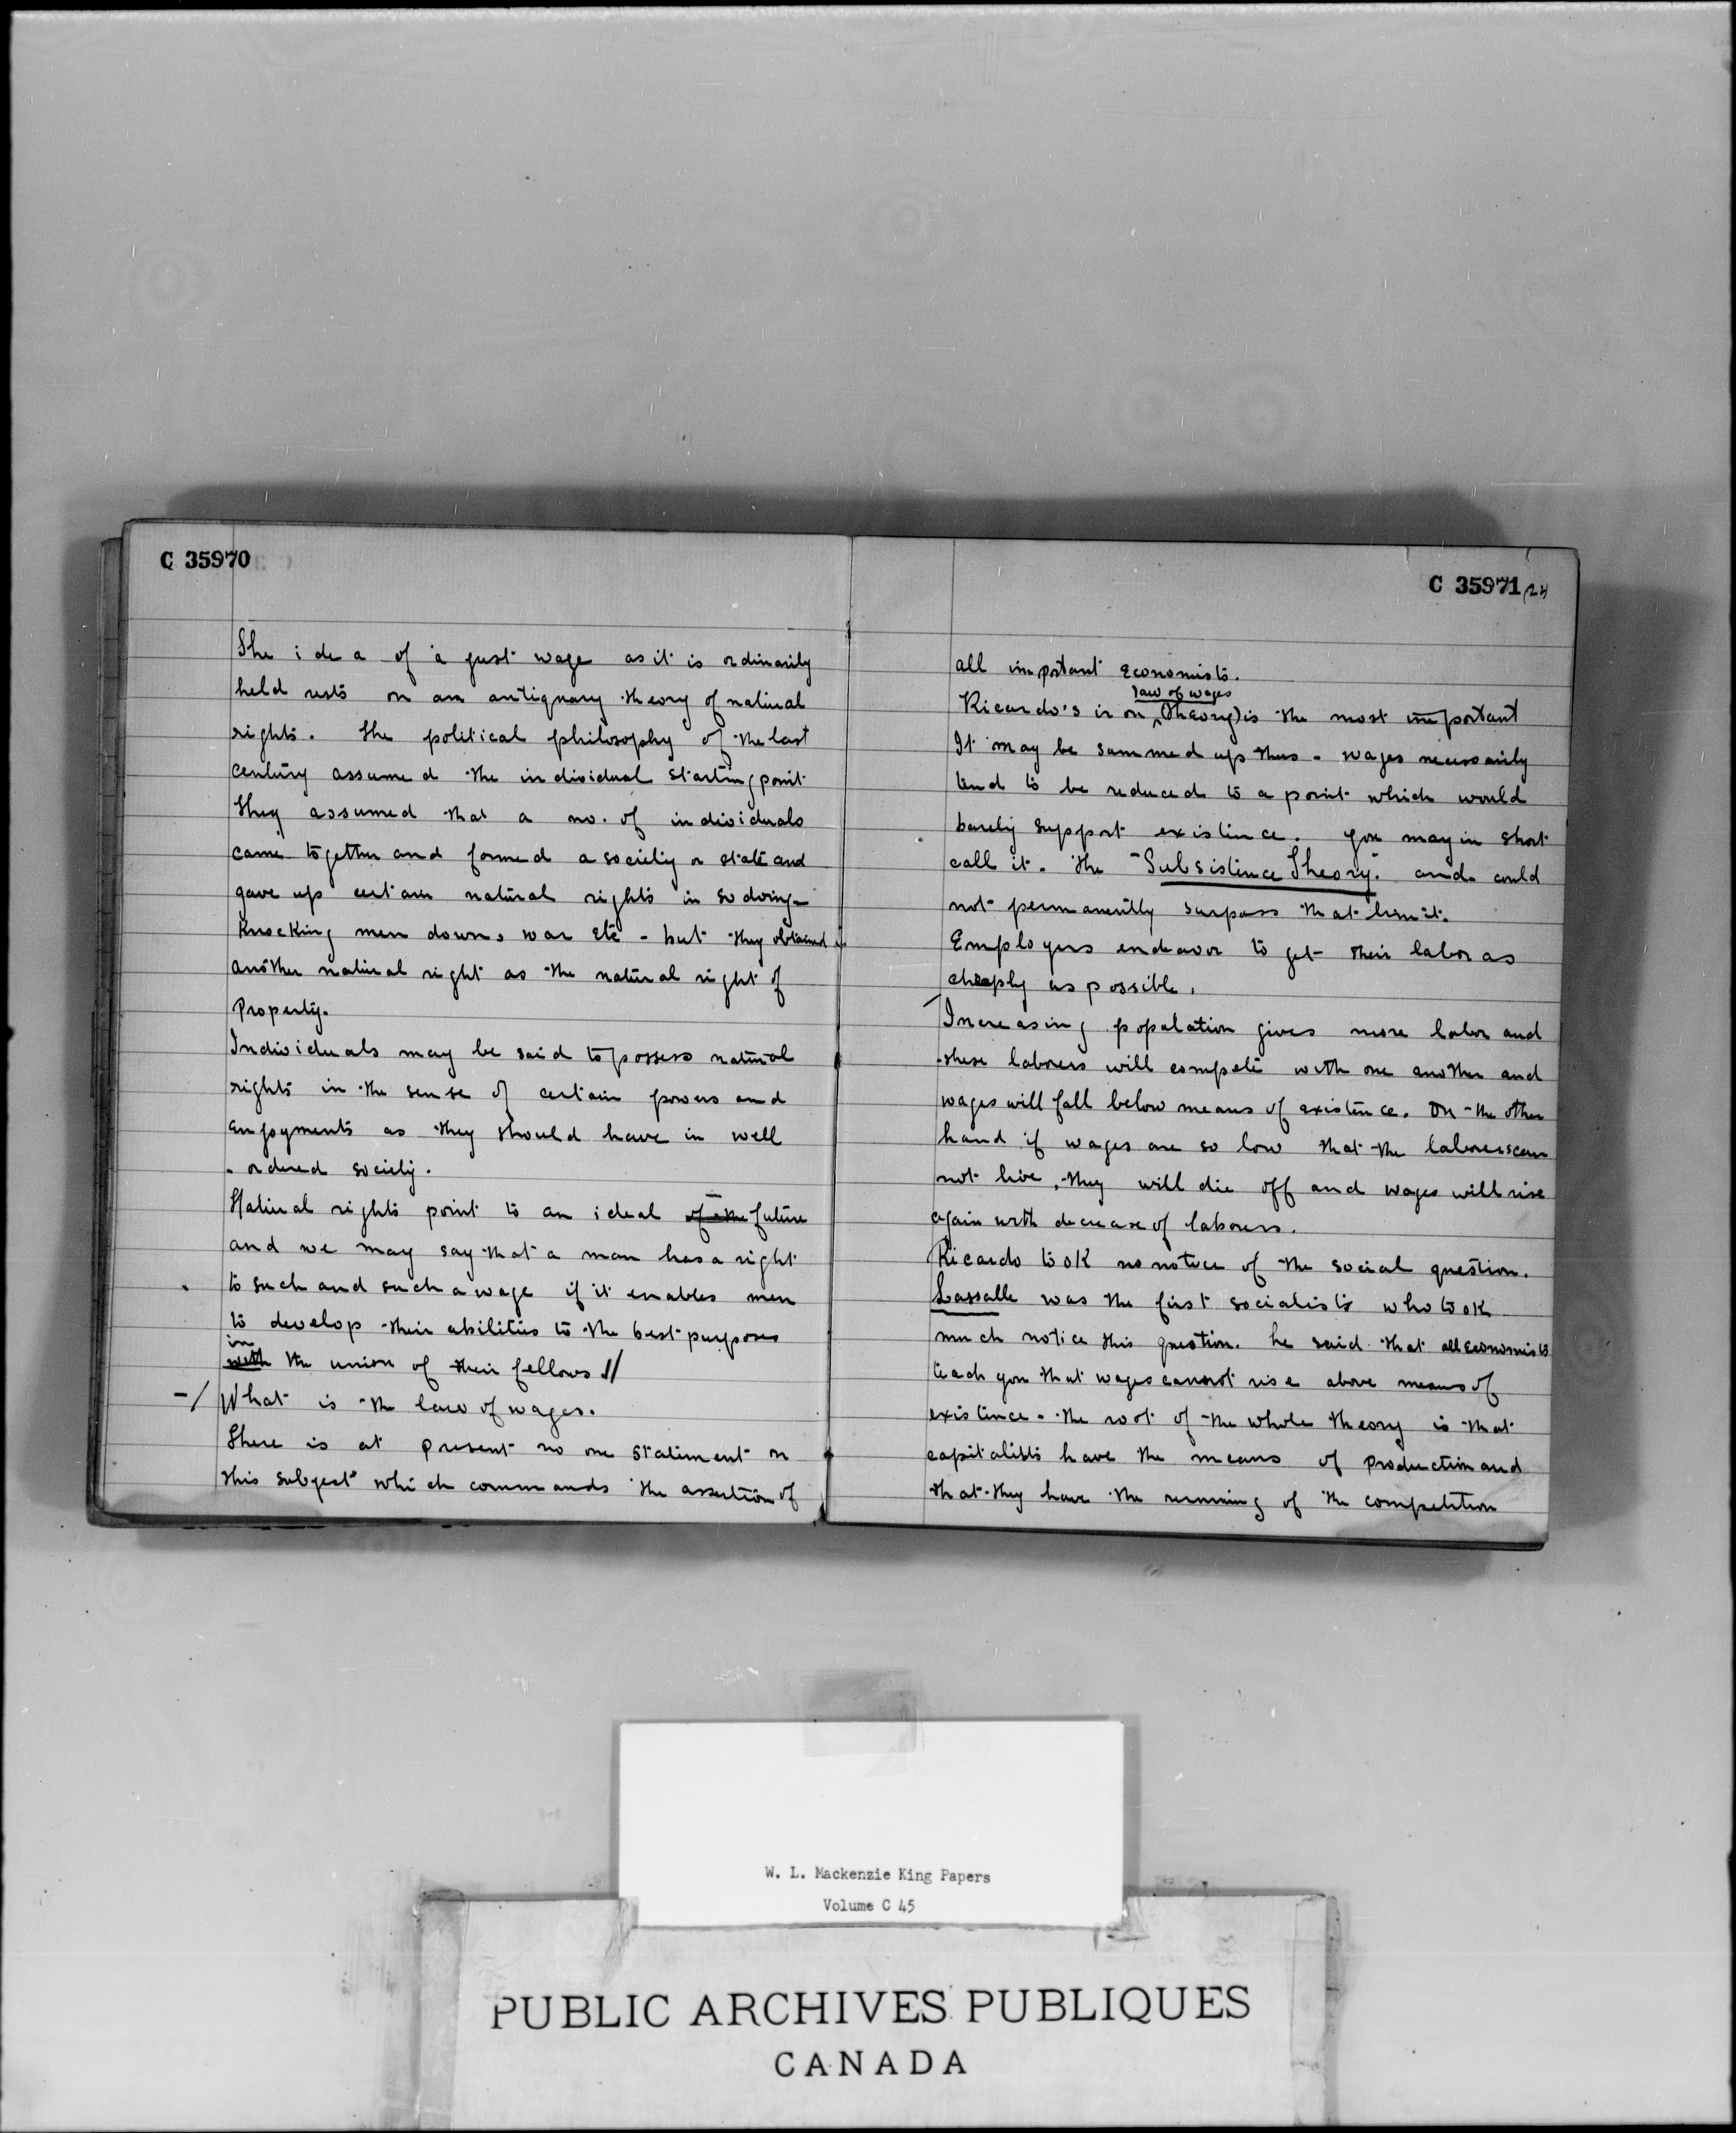 C 35970
The idea of a just wage as it is ordinarily
held rests on an antiquary theory of natural
rights. The political philosophy of the last
century assumed the individual starting point
They assumed that a no. of individuals
came together and formed a society or state and
gave up certain natural rights in so doing -
Knocking men down, war etc - but they obtained
another natural right as the natural right of
Property.
Individuals may be said to possess natural
rights in the sense of certain powers and
enjoyments as they should have in well
ordered society.
Natural rights point to an ideal of the future
and we may say that a man has a right
to such and such a wage if it enables men
to develop their abilities to the best purposes
in
with the union of their fellows //
-/ What is the law of wages.
There is at present no one statement on
this subject which commands the assertion of
C 35971 (24
all important Economists.
law of wages
Ricardo's iron ^ (Theory) is the most important
It may be summed up thus - wages necessarily
tend to be reduced to a point which would
barely support existence. you may in short
call it. the "Subsistence Theory." and could
not permanently surpass that limit.
Employers endeavor to get their labor as
cheaply as possible.
Increasing population gives more labor and
these laborers will compete with one another and
wages will fall below means of existence. On the other
hand if wages are so low that the laborers can
not live, they will die off and wages will rise
again with decrease of laborers.
Ricardo took no notice of the social question.
Lassalle was the first socialists who took
much notice this question. he said that all Economists
teach you that wages cannot rise above means of
existence - the root of the whole theory is that
capitalists have the means of production and
that they have the running of the competition
W. L. Mackenzie King Papers
Volume C 45
PUBLIC ARCHIVES PUBLIQUES
CANADA